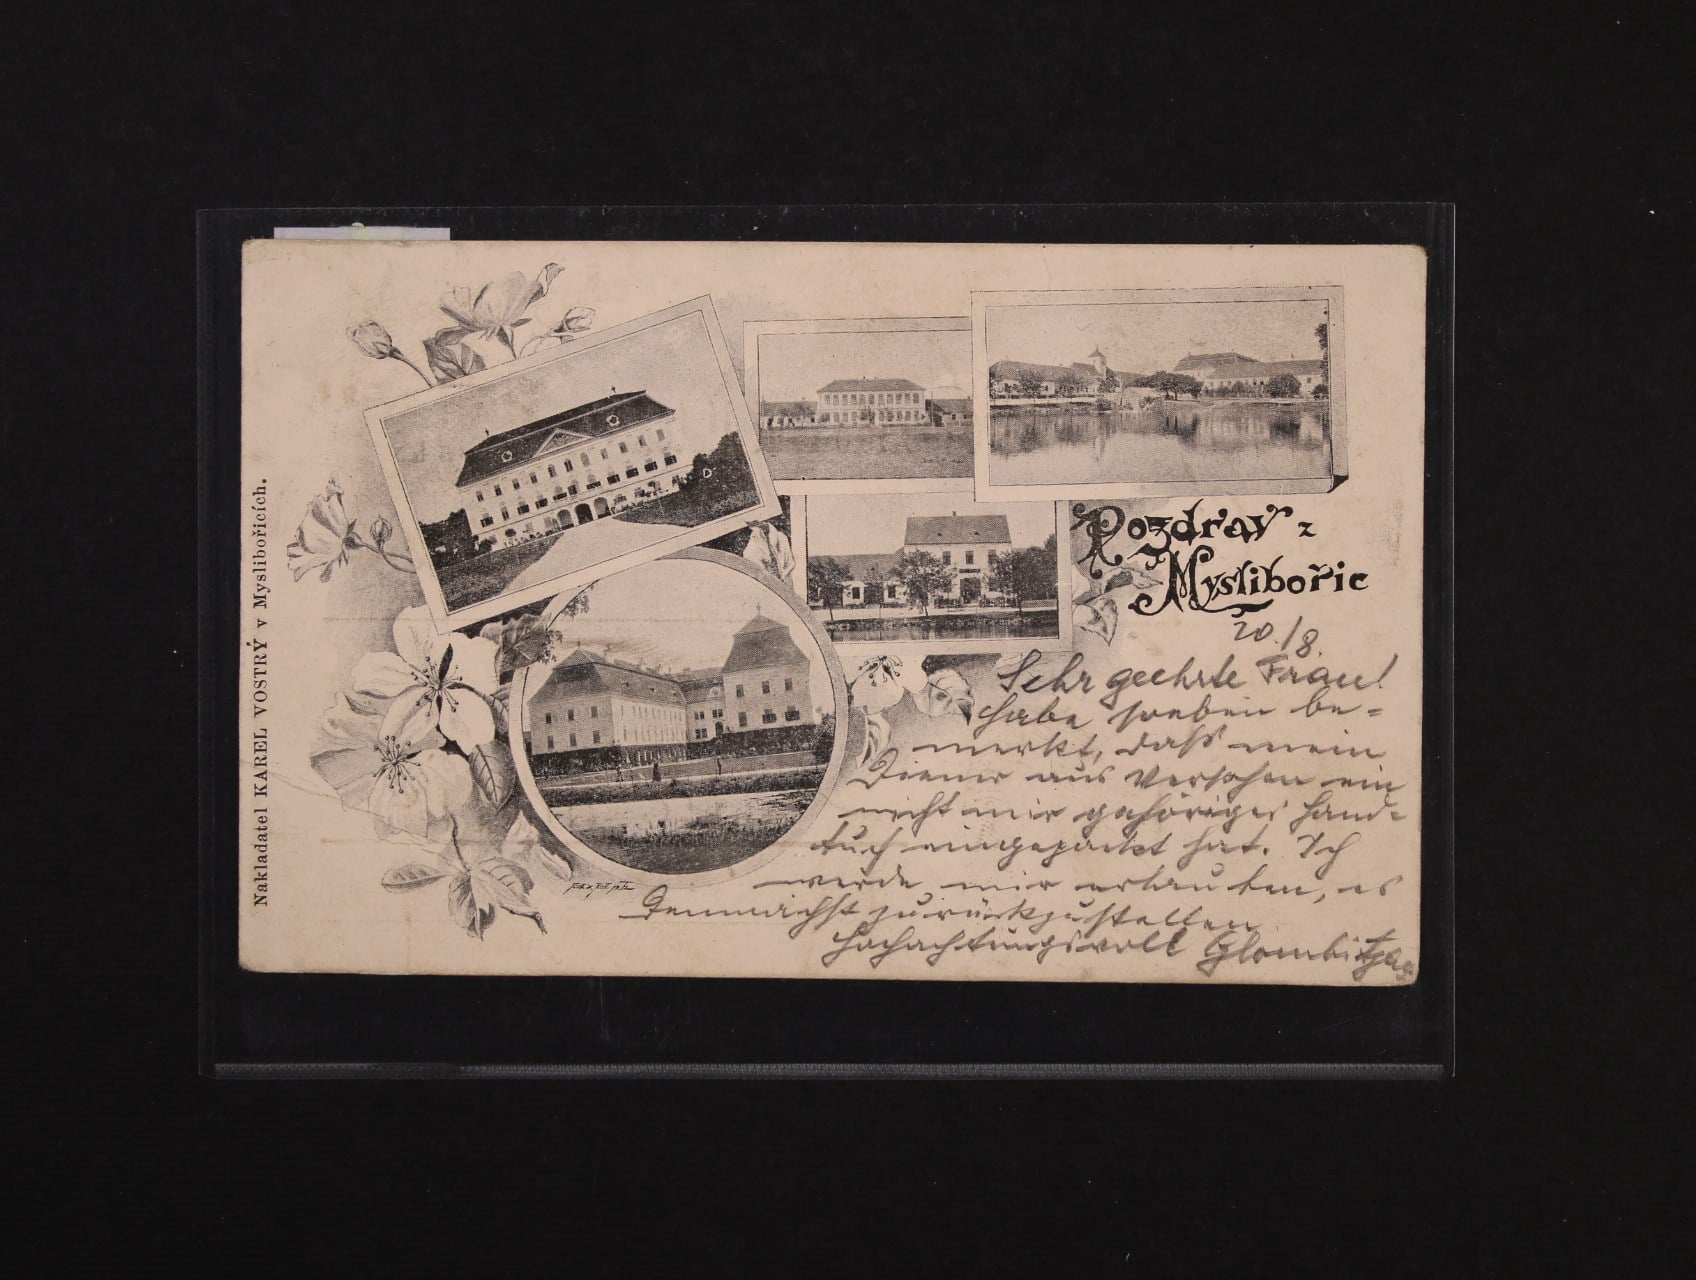 Nakladatel KAREL VOSTRÝ v Myslibořicích.
Pozdrav z
Myslibořic
20./8.
Sehr geehrte Frau!
Habe soeben be=
merkt, dass mein
Diener aus Versehen ein
nicht mir gehöriges Hand=
tuch eingepackt hat. Ich
werde mir erlauben, es
demnächst zurückzustellen
Hochachtungsvoll